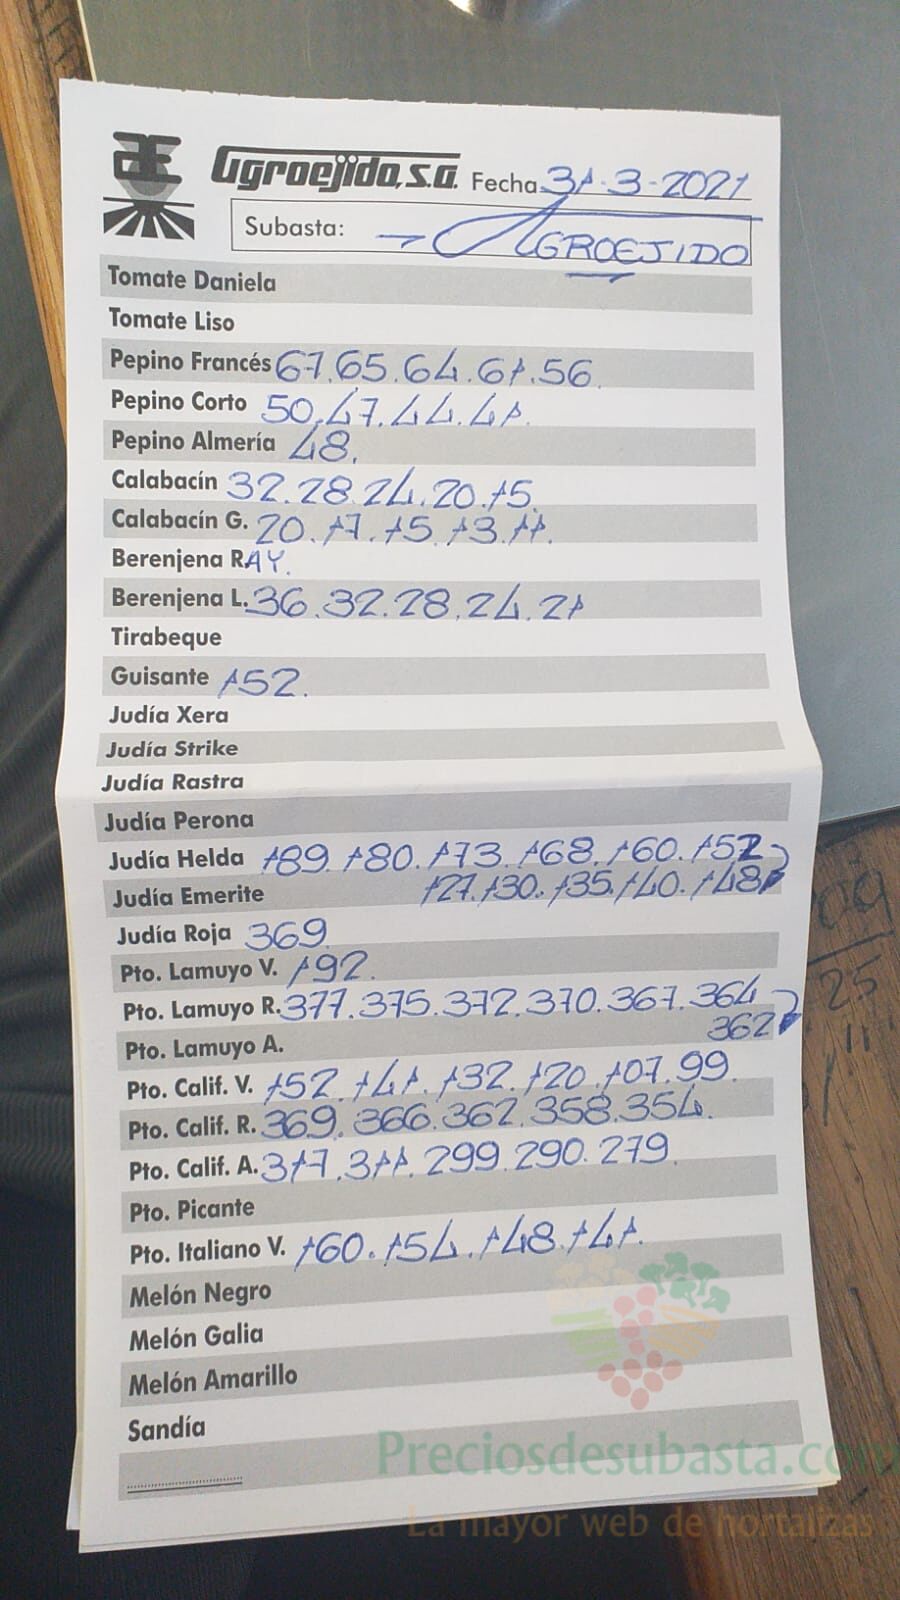 Agroejido, S.A. Fecha 31-3-2021
Subasta: - AGROEJIDO
Tomate Daniela
Tomate Liso
Pepino Francés 67.65.64.61.56.
Pepino Corto 50.47.44.41.
Pepino Almería 48.
Calabacín 32.28.24.20.15.
Calabacín G. 20.17.15.13.11.
Berenjena RAY.
Berenjena L. 36.32.28.24.21
Tirabeque
Guisante 152.
Judía Xera
Judía Strike
Judía Rastra
Judía Perona
Judía Helda 189.180.173.168.160.152
Judía Emerite 127.130.135.140.148
Judía Roja 369
Pto. Lamuyo V. 192.
Pto. Lamuyo R. 377.375.372.370.367.364
362
Pto. Lamuyo A.
Pto. Calif. V. 152.141.132.120.107.99.
Pto. Calif. R. 369.366.362.358.354.
Pto. Calif. A. 317.311.299.290.279.
Pto. Picante
Pto. Italiano V. 160.154.148.141.
Melón Negro
Melón Galia
Melón Amarillo
Sandía
Preciosdesubasta.com
La mayor web de hortalizas